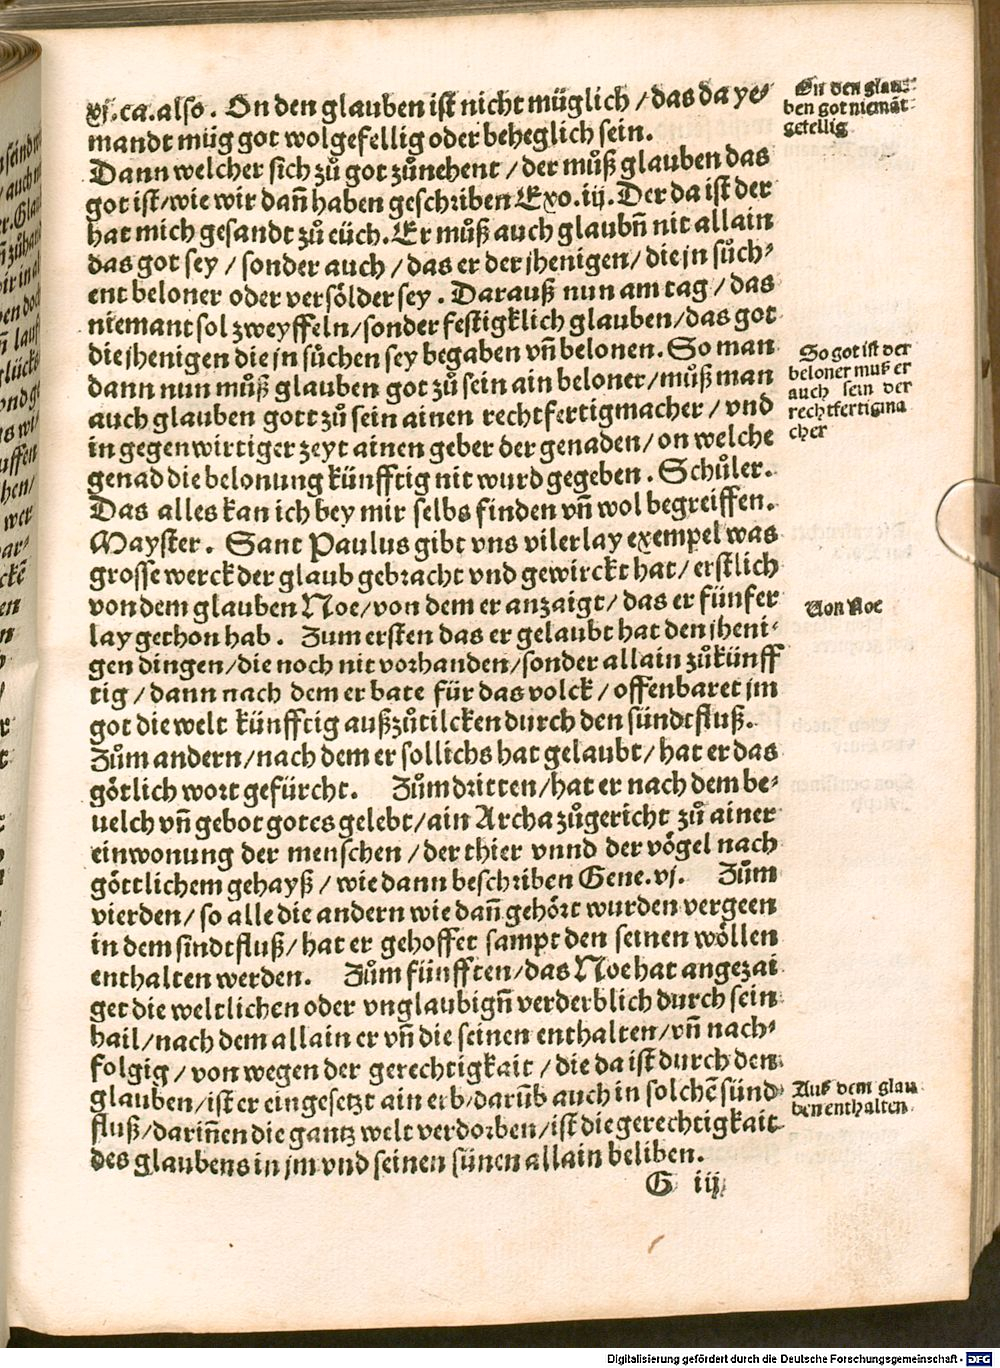 xj. ca. also. On den glauben ist nicht müglich / das da ye⸗
mandt müg got wolgefellig oder beheglich sein.
Dann welcher sich zů got zůnehent / der můß glauben das
got ist/wie wir dañ haben geschriben Exo. iij. Der da ist der
hat mich gesandt zů eüch. Er můß auch glaubñ nit allain
das got sey / sonder auch / das er der jhenigen/ die jn sůch⸗
ent beloner oder versölder sey. Darauß nun am tag / das
niemant sol zweyffeln/sonder festigklich glauben/das got
die jhenigen die jn sůchen sey begaben vñ belonen. So man
dann nun můß glauben got zů sein ain beloner/můß man
auch glauben gott zů sein ainen rechtfertigmacher / vnd
in gegenwirtiger zeyt ainen geber der genaden/ on welche
genad die belonung künfftig nit wurd gegeben. Schůler.
Das alles kan ich bey mir selbs finden vñ wol begreiffen.
Mayster. Sant Paulus gibt vns vilerlay exempel was
grosse werck der glaub gebracht vnd gewirckt hat/ erstlich
von dem glauben Noe/von dem er anzaigt/ das er fünfer
lay gethon hab. Zum ersten das er gelaubt hat den jheni⸗
gen dingen/die noch nit vorhanden/sonder allain zůkünff
tig / dann nach dem er bate für das volck / offenbaret jm
got die welt künfftig außzůtilcken durch den sündtfluß.
Zům andern/nach dem er sollichs hat gelaubt/ hat er das
götlich wort gefürcht. Zům dritten/hat er nach dem be⸗
uelch vñ gebot gotes gelebt/ain Archa zůgericht zů ainer
einwonung der menschen / der thier vnnd der vögel nach
göttlichem gehayß / wie dann beschriben Gene. vj. Zům
vierden/ so alle die andern wie dañ gehört wurden vergeen
in dem sindtfluß/ hat er gehoffet sampt den seinen wöllen
enthalten werden. Zům fünfften/das Noe hat angezai
get die weltlichen oder vnglaubigñ verderblich durch sein
hail/nach dem allain er vñ die seinen enthalten/vñ nach⸗
folgig / von wegen der gerechtigkait / die da ist durch den
glauben/ist er eingesetzt ain erb/darũb auch in solchẽ sünd⸗
fluß/dariñen die gantz welt verdorben/ist die gerechtigkait
des glaubens in jm vnd seinen sünen allain beliben.
G iij
On den glau⸗
ben got niemãt
gefellig
So got ist der
beloner muß er
auch sein der
rechtfertigma
cher
Von Noe
Auß dem glau
ben enthalten
Digitalisierung gefördert durch die Deutsche Forschungsgemeinschaft - DFG